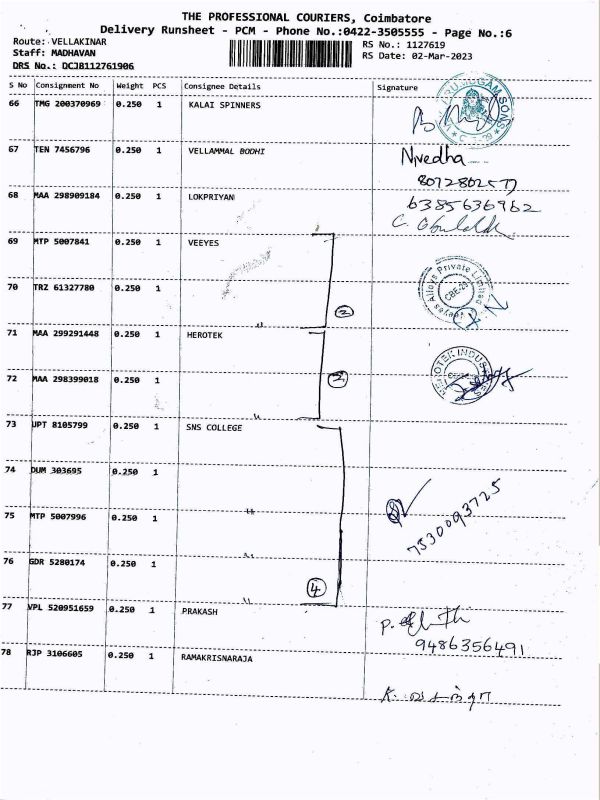 THE PROFESSIONAL COURIERS, Coimbatore
Delivery Runsheet - PCM - Phone No.:0422-3505555 - Page No.:6
Route: VELLAKINAR
RS No.: 1127619
Staff: MADHAVAN
RS Date: 02-Mar-2023
DRS No.: DCJB112761906
S No Consignment No Weight PCS Consignee Details Signature
66 TMG 200370969 0.250 1 KALAI SPINNERS
67 TEN 7456796 0.250 1 VELLAMMAL BODHI Nivedha
68 MAA 298909184 0.250 1 LOKPRIYAN 6385636962
69 MTP 5007841 0.250 1 VEEYES
70 TRZ 61327780 0.250 1 " 2 Veeyes Alloys Private Limited CBE-29
71 MAA 299291448 0.250 1 HEROTEK
72 MAA 298399018 0.250 1 " 2 HEROTEK INDUSTRIES
73 JPT 8105799 0.250 1 SNS COLLEGE
74 DUM 303695 0.250 1 "
75 MTP 5007996 0.250 1 " 7530093725
76 GDR 5280174 0.250 1 " 4
77 VPL 520951659 0.250 1 PRAKASH
9486356491
78 RJP 3106605 0.250 1 RAMAKRISNARAJA
K. வசந்தா